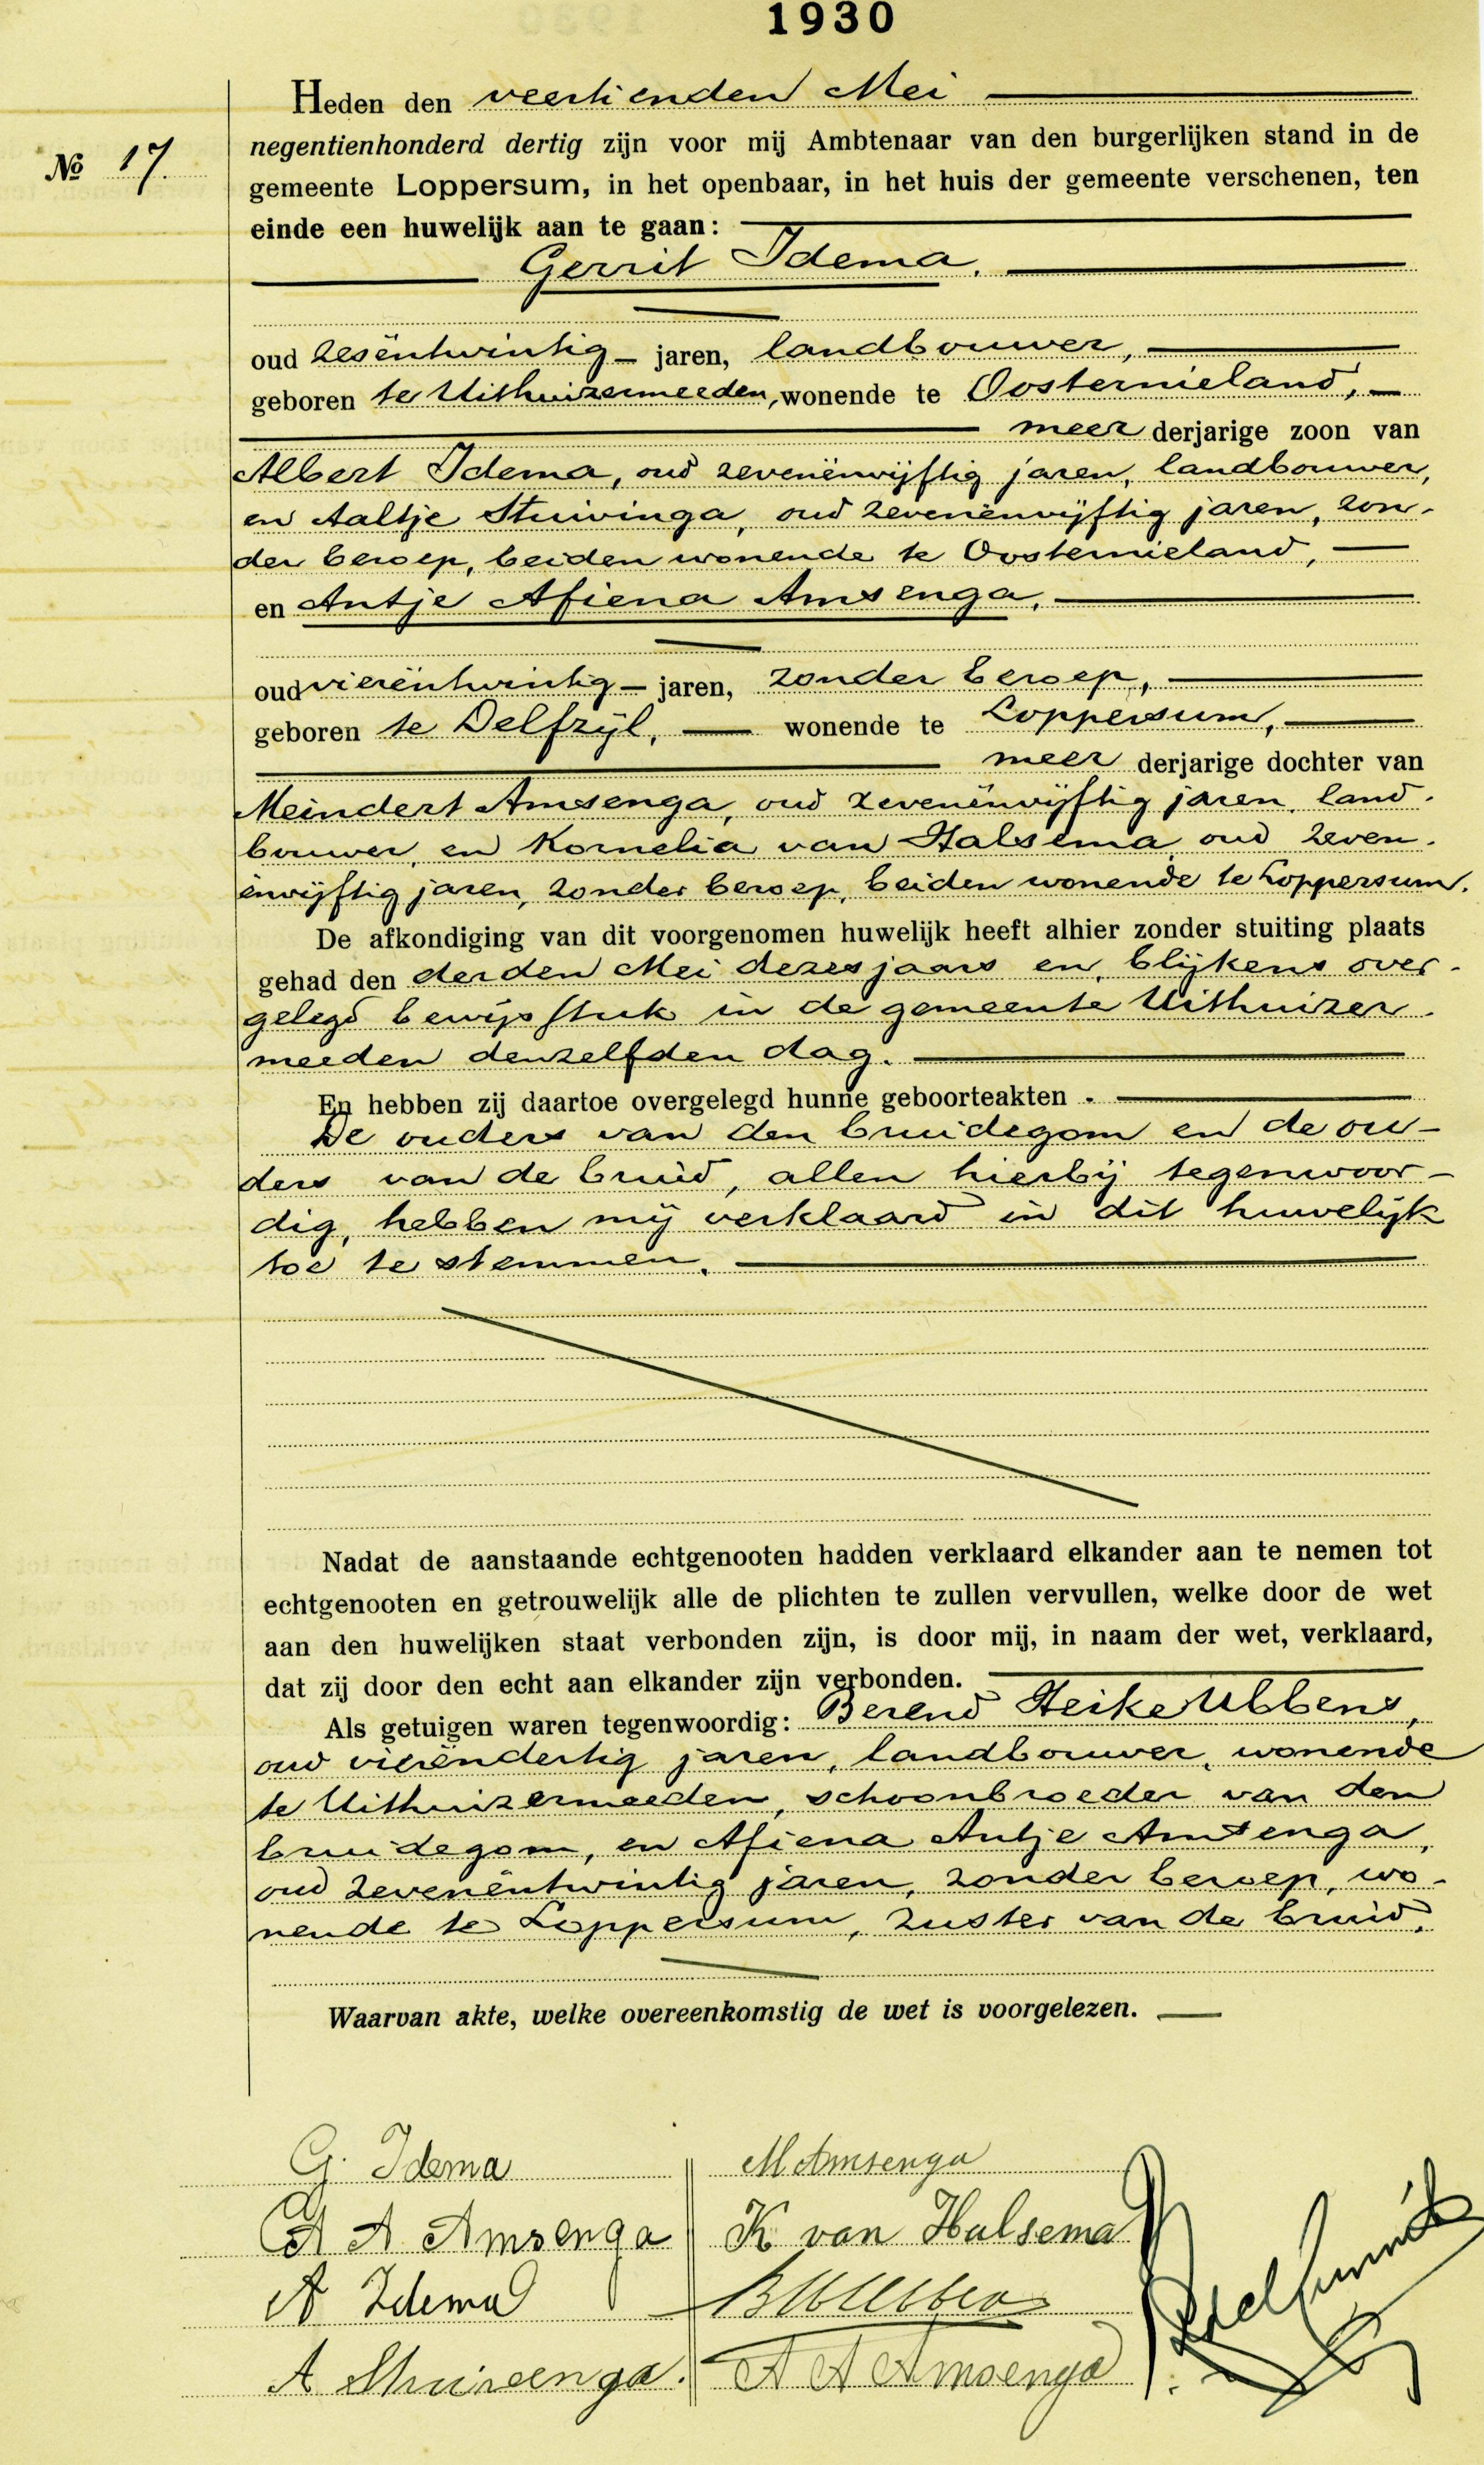 1930
Heden den veertienden Mei
negentienhonderd dertig zijn voor mij Ambtenaar van den burgerlijken stand in de
№ 17.
gemeente Loppersum, in het openbaar, in het huis der gemeente verschenen, ten
einde een huwelijk aan te gaan:
Gerrit Idema,
oud zesëntwintig jaren, landbouwer,
geboren te Uithuizermeeden, wonende te Oosternieland,
meer derjarige zoon van
Albert Idema, oud zevenënvijftig jaren, landbouwer,
en Aaltje Stuivinga, oud zevenënvijftig jaren, zon-
der beroep, beiden wonende te Oosternieland,
en Antje Afiena Amsenga,
oud vierëntwintig jaren, zonder beroep,
geboren te Delfzijl, wonende te Loppersum,
meer derjarige dochter van
Meindert Amsenga, oud zevenënvijftig jaren, land-
bouwer, en Kornelia van Halsema, oud zeven-
ënvijftig jaren, zonder beroep, beiden wonende te Loppersum.
De afkondiging van dit voorgenomen huwelijk heeft alhier zonder stuiting plaats
gehad den derden Mei dezes jaars en, blijkens over-
gelegd bewijsstuk in de gemeente Uithuizer-
meeden denzelfden dag.
En hebben zij daartoe overgelegd hunne geboorteakten.
De ouders van den bruidegom en de ou-
ders van de bruid, allen hierbij tegenwoor-
dig, hebben mij verklaard in dit huwelijk
toe te stemmen.
Nadat de aanstaande echtgenooten hadden verklaard elkander aan te nemen tot
echtgenooten en getrouwelijk alle de plichten te zullen vervullen, welke door de wet
aan den huwelijken staat verbonden zijn, is door mij, in naam der wet, verklaard,
dat zij door den echt aan elkander zijn verbonden.
Als getuigen waren tegenwoordig: Berend Heike Ubbens,
oud vierëndertig jaren, landbouwer, wonende
te Uithuizermeeden, schoonbroeder van den
bruidegom, en Afiena Antje Amsenga,
oud zevenëntwintig jaren, zonder beroep, wo-
nende te Loppersum, zuster van de bruid.
Waarvan akte, welke overeenkomstig de wet is voorgelezen.
G. Idema
M Amsenga
A A Amsenga
K van Halsema
A Idema
BHUbbens
A Stuivenga.
A A Amsenga